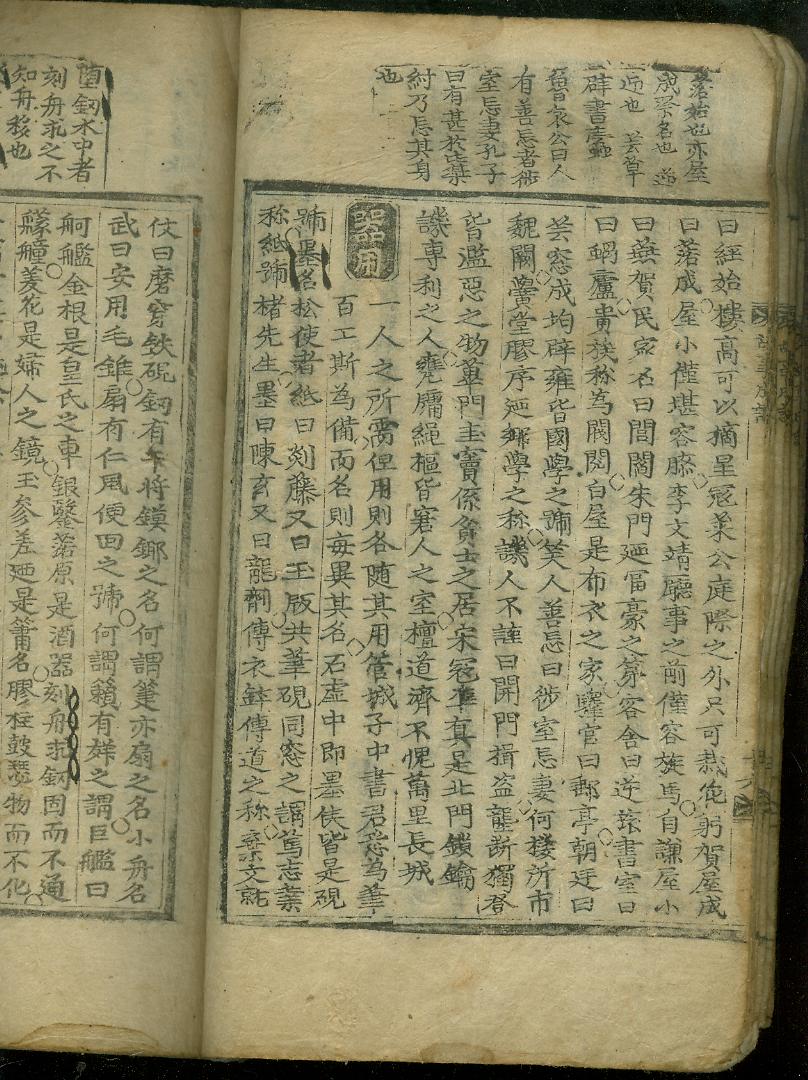 落始也亦屋
成祭名也 迨
迎也 芸草
辟書蠹
魯哀公曰人
有善忘者徙
室忘妻孔子
曰有甚於此桀
紂乃忘其身
也
曰經始樓高可以摘星寇萊公庭除之外只可栽花躬賀屋成
曰落成屋小僅堪容膝李文靖廳事之前僅容旋馬自謙屋小
曰蕪賀民家名曰閭閻朱門廼富豪之第客舍曰逆旅書室曰
曰蝸廬貴族称為閥閱白屋是布衣之家驛官曰郵亭朝廷曰
芸窓成均辟雍皆國學之號笑人善忘曰徙室忘妻何樓所市
魏闕黌堂膠序廼鄉學之称譏人不謹曰開門揖盗龍斷獨登
皆濫惡之物蓽門圭竇係貧士之居宋寇凖真是北門鎖鑰
譏專利之人甕牖繩樞皆窘人之室檀道濟不愧萬里長城
器用
一人之所需但用則各随其用管城子中書君悉為筆
百工斯為備而名則每異其名石虚中即墨侯皆是硯
號墨名松使者紙曰剡藤又曰玉版共筆硯同窓之謂篤志業
称紙號楮先生墨曰陳玄又曰龍劑傳衣鉢傳道之称
墮釼水中者
刻舟求之不
知舟移也
伩曰磨穿鉄硯釼有干將鏌鎁之名何謂箑亦扇之名小舟名
武曰安用毛錐扇有仁風便面之號何謂籟有声之謂巨艦曰
舸艦金根是皇氏之車銀鑿落原是酒器刻舟求釼固而不通
艨艟菱花是婦人之鏡玉參差廼是簫名膠柱鼓瑟物而不化